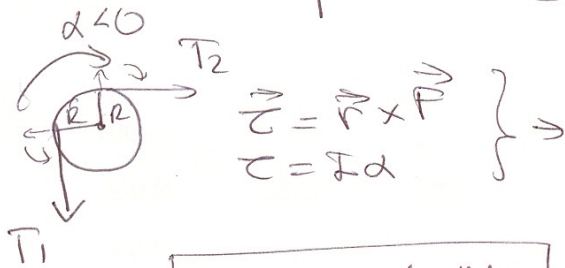 α<0
T₂
R R
τ⃗ = r⃗ × F⃗ } →
τ = Iα
T₁